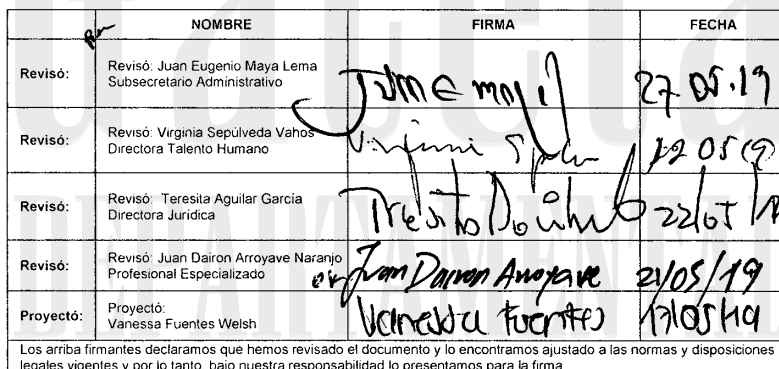 NOMBRE FIRMA FECHA
Revisó: Revisó: Juan Eugenio Maya Lema
Subsecretario Administrativo 27 05.19
Revisó: Revisó: Virginia Sepúlveda Vahos
Directora Talento Humano 22 05 19
Revisó: Revisó: Teresita Aguilar García
Directora Jurídica 22/05/19
Revisó: Revisó: Juan Dairon Arroyave Naranjo
Profesional Especializado Juan Dairon Arroyave 21/05/19
Proyectó: Proyectó:
Vanessa Fuentes Welsh Vanessa Fuentes 17/05/19
Los arriba firmantes declaramos que hemos revisado el documento y lo encontramos ajustado a las normas y disposiciones
legales vigentes y por lo tanto, bajo nuestra responsabilidad lo presentamos para la firma